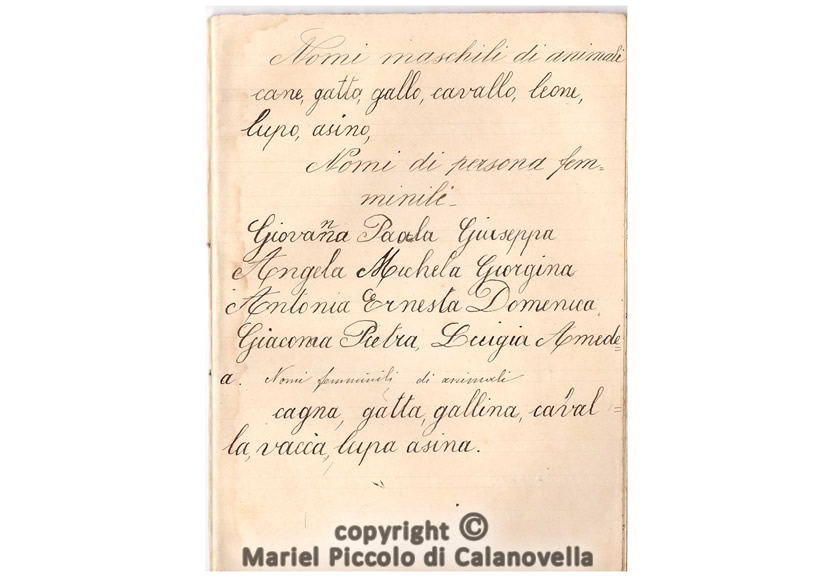 Nomi maschili di animali
cane, gatto, gallo, cavallo, leone,
lupo, asino,
Nomi di persona fem=
minili_
Giovanna Paola Giuseppa
Angela Michela Giorgina
Antonia Ernesta Domenica,
Giacoma Pietra, Luigia Amede=
a. Nomi femminili di animali
cagna, gatta, gallina, caval=
la, vacca, lupa asina.
copyright ©
Mariel Piccolo di Calanovella